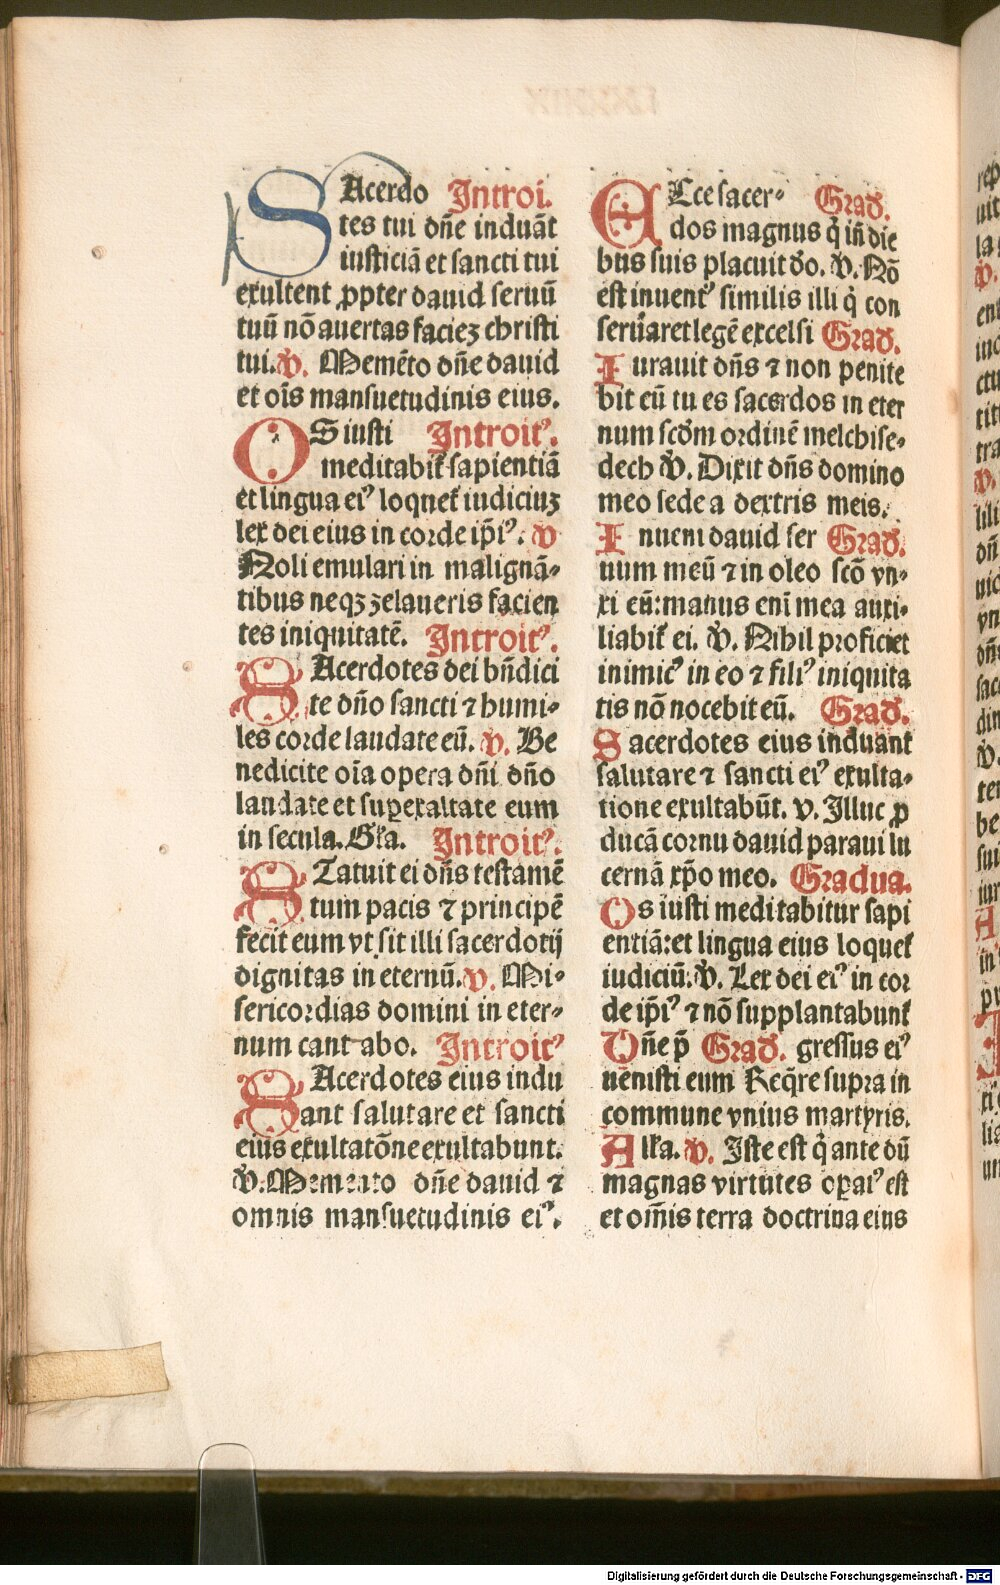 SAcerdo Introi.
tes tui dñe induãt
iusticiã et sancti tui
exultent ꝓpter dauid seruũ
tuũ nõ auertas faciez christi
tui. ℣. Memẽto dñe dauid
et oĩs mansuetudinis eius.
OS iusti Introitꝰ.
meditabiť sapientiã
et lingua eiꝰ loqueť iudiciuz
lex dei eius in corde ip̃iꝰ. ℣
Noli emulari in malignã⸗
tibus neqꝫ zelaueris facien
tes iniquitatẽ. Introitꝰ.
SAcerdotes dei bñdici
te dño sancti ⁊ humi⸗
les corde laudate eũ. ℣. Be
nedicite oĩa opera dñi dño
laudate et suꝑexaltate eum
in secula. Gľa. Introitꝰ.
STatuit ei dñs testamẽ
tum pacis ⁊ principẽ
fecit eum vt sit illi sacerdotij
dignitas in eternũ. ℣. Mi⸗
sericordias domini in eter⸗
num cantabo. Introitꝰ
SAcerdotes eius indu
ant salutare et sancti
eius exultatõne exultabunt.
℣. Memento dñe dauid ⁊
omnis mansuetudinis eiꝰ.
ECce sacer⸗ Grad̃.
dos magnus q̇ iñ die
bus suis placuit do. ℣. Nõ
est inuentꝰ similis illi q̇ con
seruaret legẽ excelsi Grad̃.
Iurauit dñs ⁊ non penite
bit eũ tu es sacerdos in eter
num scḋm ordinẽ melchise⸗
dech ℣. Dixit dñs domino
meo sede a dextris meis.
Inueni dauid ser Grad̃.
uum meũ ⁊ in oleo scõ vn⸗
xi eũ: manus enĩ mea auxi⸗
liabiť ei. ℣. Nihil proficiet
inimicꝰ in eo ⁊ filiꝰ iniquita
tis nõ nocebit eũ. Grad̃.
Sacerdotes eius induant
salutare ⁊ sancti eiꝰ exulta⸗
tione exultabũt. ℣. Illuc ꝓ
ducã cornu dauid paraui lu
cernã xp̃o meo. Gradua.
Os iusti meditabitur sapi
entiã: et lingua eius loqueť
iudiciũ. ℣. Lex dei eiꝰ in cor
de ip̃iꝰ ⁊ nõ supplantabunť
Dñe p̃ Grad̃. gressus eiꝰ
uẽnisti eum Req̃re supra in
commune vnius martyris.
Alľa. ℣. Iste est q̇ ante dũ
magnas virtutes oꝑaťꝰ est
et om̃is terra doctrina eius
Digitalisierung gefördert durch die Deutsche Forschungsgemeinschaft - DFG